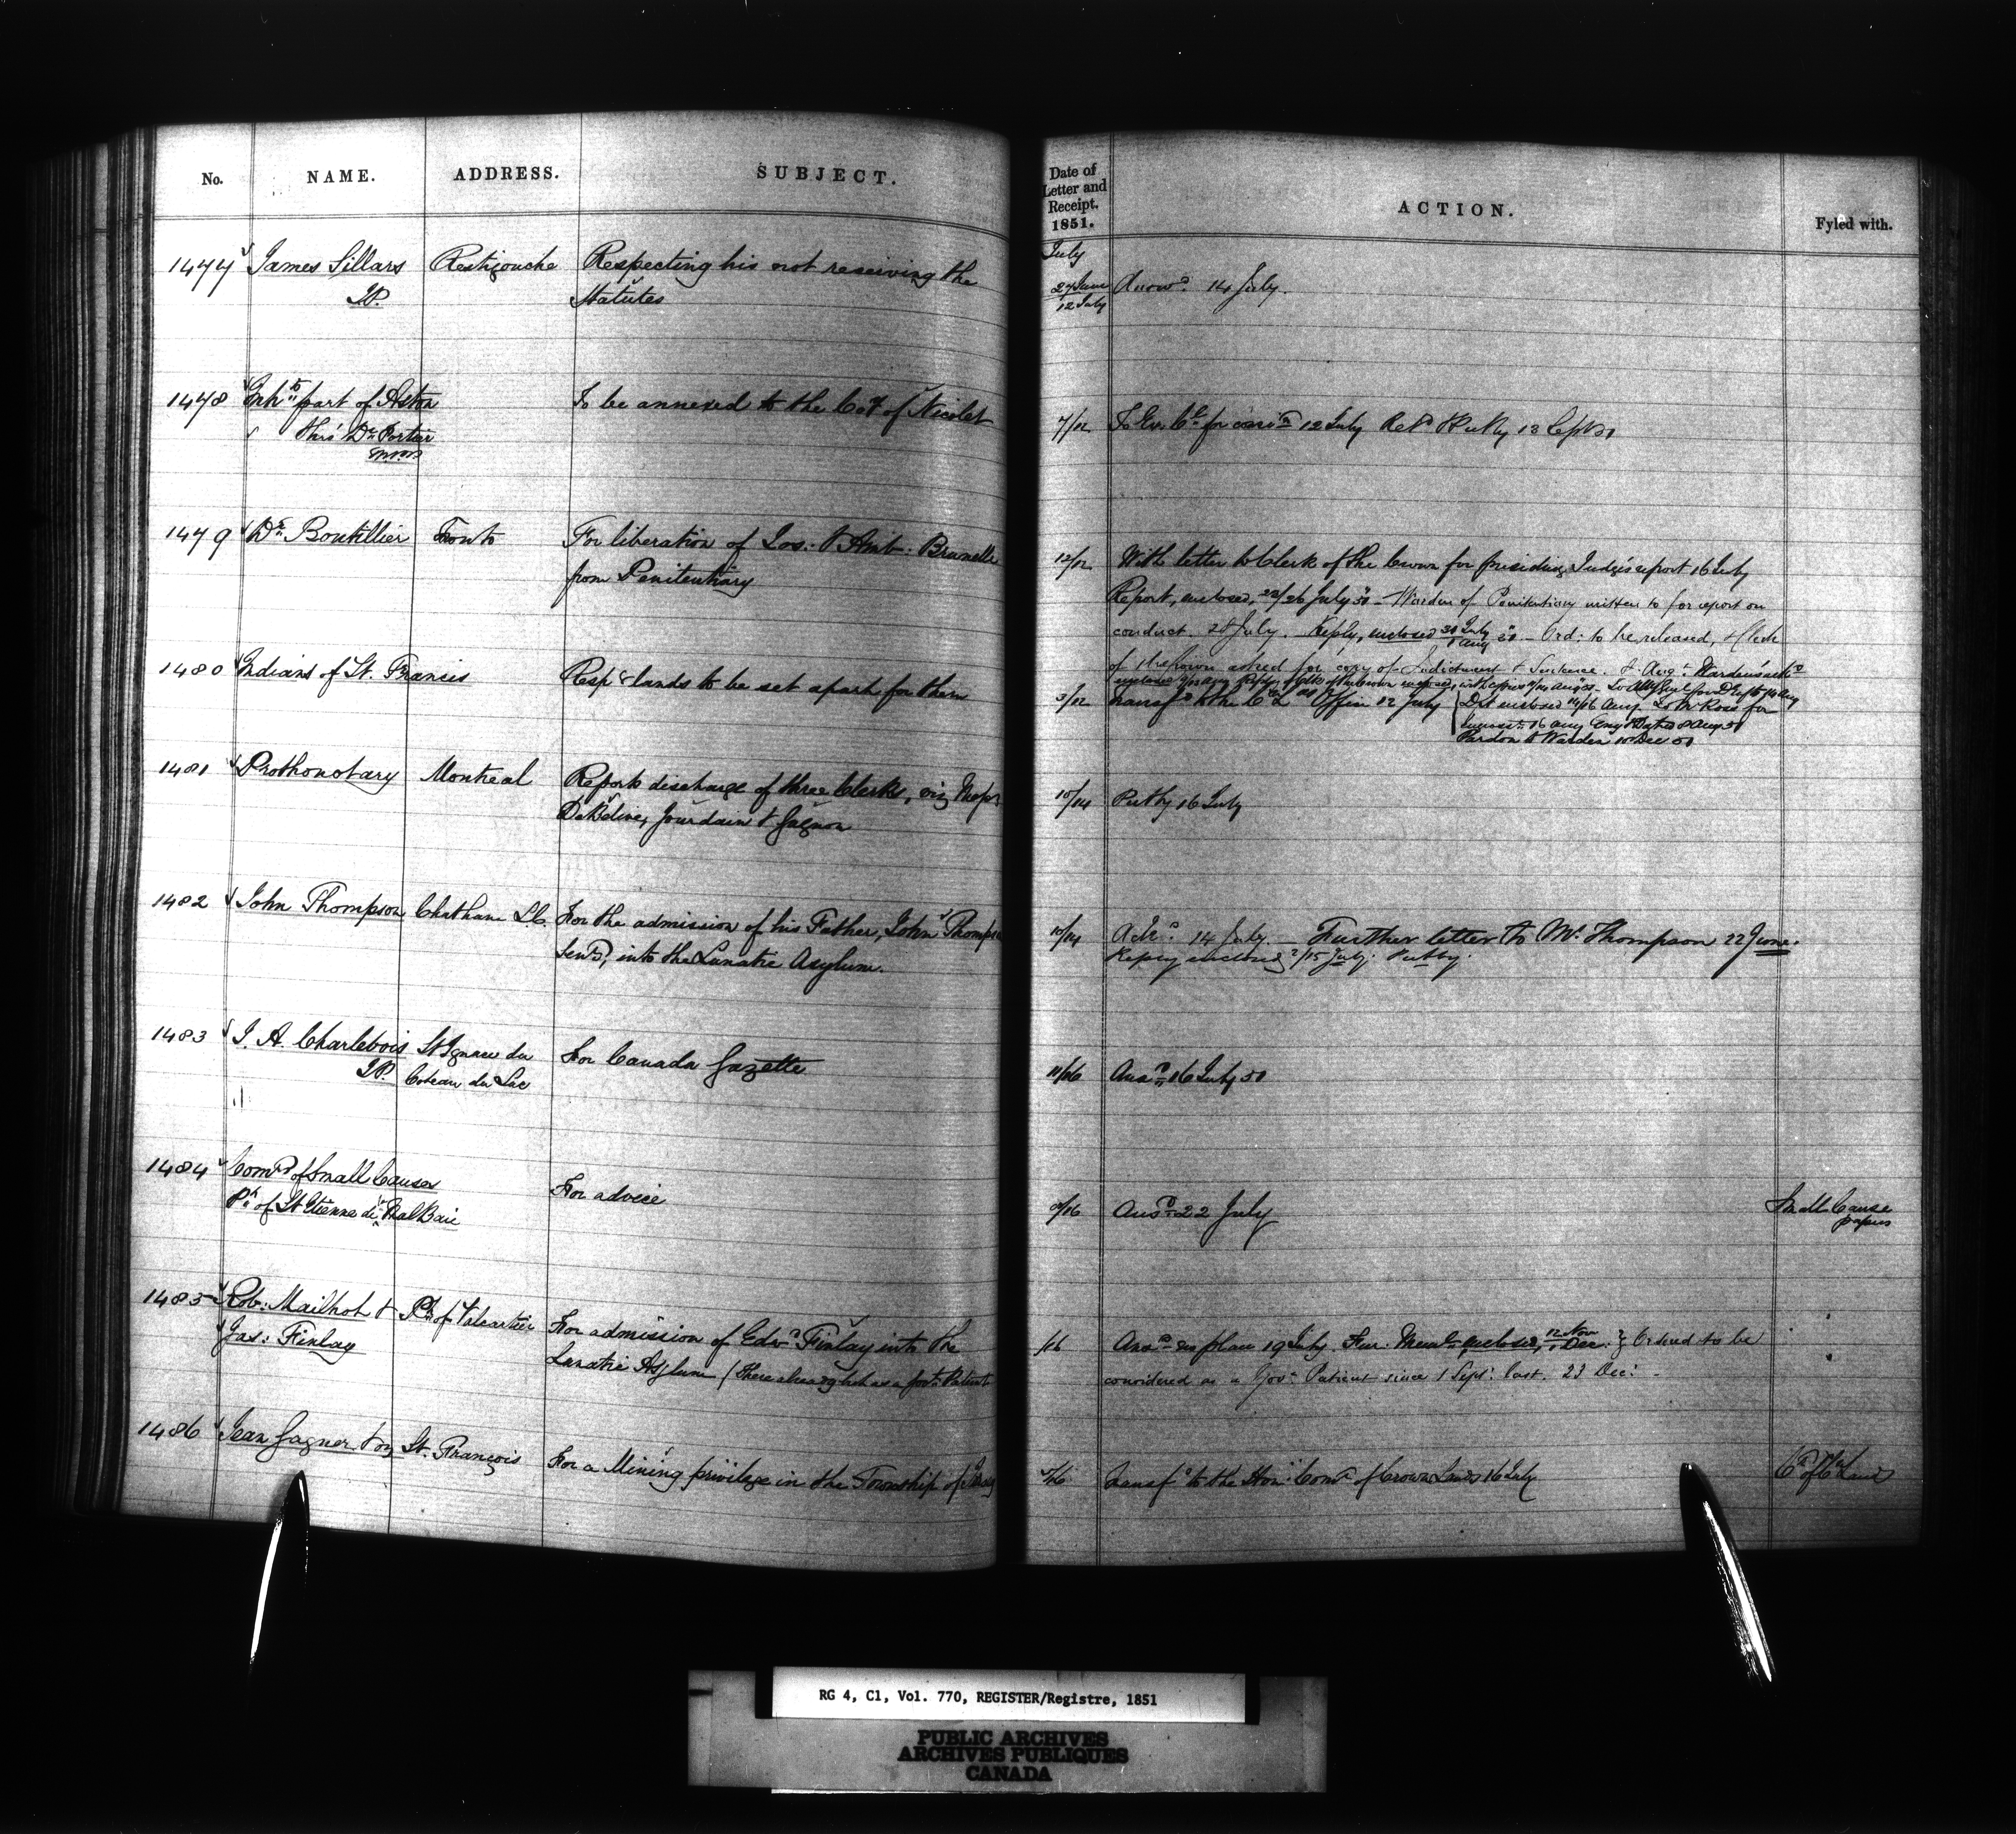 No. NAME. ADDRESS. SUBJECT.
1477 James Sillars Restigouche Respecting his not receiving the
J.P. Statutes
1478 Inhts part of Aston To be annexed to the Coy of Nicolet
thro' Dr Fortier
M.P.P.
1479 Dr Boutillier Toronto For liberation of Jos: & Amb: Brunelle
from Penitentiary
1480 Indians of St. Francis Respg lands to be set apart for them
1481 Prothonotary Montreal Reports discharge of three Clerks, viz Messrs
Jourdain & Gagnon
1482 John Thompson Chatham L.C. For the admission of his Father, John Thompson
Senr, into the Lunatic Asylum.
1483 J. A. Charlebois St Ignace du For Canada Gazette
J.P. Coteau du Lac
1484 Comrs of Small Causes For advice
Ph of St Etienne de la MalBaie
1485 Rob: Mailhot & Ph of Valcartier For admission of Edwd Finlay into the
Jas: Finlay Lunatic Asylum (There already but as a Patient
1486 Jean Gagner & St. François For a Mining privilege in the Township of
Date of
Letter and
Receipt.
1851.
ACTION.
Fyled with.
July
27 June Answd 14 July.
12 July
7/12 To Ex. Cl for consn 12 July Retd & Put by 13 Sept 51
12/12 With letter to Clerk of the Crown for presiding Judge's report 16 July
Report, enclosed, 22/26 July 51 - Warden of Penitentiary written to for report on
conduct. 28 July. Reply, enclosed 30 July - Ord: to be released, & Clerk
of the Crown asked for copy of Indictment & Sentence. Augt Warden's
3/12 Transfd to the C L Office 12 July Dft enclosed 14/16 Aug. To Mr Ross for
16 Aug 8 Aug 51
Pardon to Warden 10 Dec 51
10/14 Put by 16 July
10/14 Ackd 14 July. Further letter to Mr Thompson 22 June.
Reply enclosed /15 July. Put by.
11/16 Ansd 16 July 51
/16 Ansd 22 July Small Cause
papers
/16 Ansd 19 July Fur. enclosed, 12 Nov Dec. Ordered to be
considered as a Govt Patient since 1 Sept: last. 23 Dec:
/16 Transfd to the Hon: Comr of Crown Lands 16 July
RG 4, C1, Vol. 770, REGISTER/Registre, 1851
PUBLIC ARCHIVES
ARCHIVES PUBLIQUES
CANADA